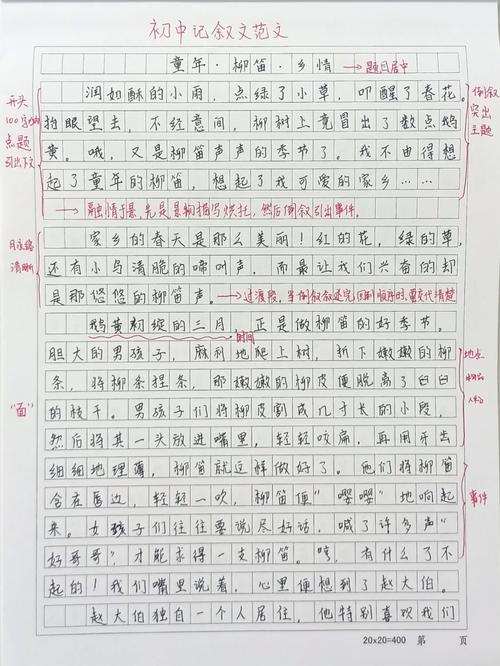 初中记叙文范文
童年·柳笛·乡情
→题目居中
开头
100字内
点题
引出下文
润如酥的小雨，点绿了小草，叩醒了春花。
抬眼望去，不经意间，柳树上竟冒出了数点鹅
黄。哦，又是柳笛声声的季节了。我不由得想
起了童年的柳笛，想起了我可爱的家乡……
倒叙
突出
主题
→融情于景，先是景物描写烘托，然后倒叙引出事件。
清晰
家乡的春天是那么美丽！红的花，绿的草，
还有小鸟清脆的啼叫声，而最让我们兴奋的却
是那悠悠的柳笛声。
→过渡段，当倒叙叙述完回到顺序时，要交代清楚
鹅黄初绽的三月，正是做柳笛的好季节。
时间
胆大的男孩子，麻利地爬上树，折下嫩嫩的柳
条，将柳条捏条，那嫩嫩的柳皮便脱离了白白
的枝干。男孩子们将柳皮割成几寸长的小段，
然后将其一头放进嘴里，轻轻咬扁，再用牙齿
细细地理薄，柳笛就这样做好了。他们将柳笛
含在唇边，轻轻一吹，柳笛便“嘤嘤”地响起
来。女孩子们往往要说尽好话，喊了许多声“
好哥哥”，才能求得一支柳笛。嗬，有什么了不
起的！我们嘴里说着，心里便想到了赵大伯。
赵大伯独自一个人居住，他特别喜欢我们
“面”
地点
人物
事件
20×20=400 第 页